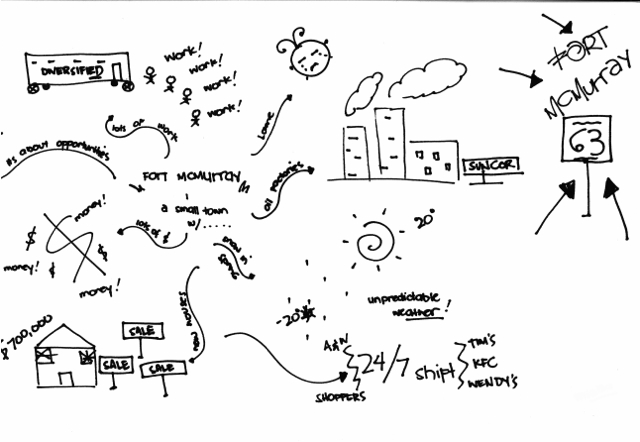 DIVERSIFIED
work!
work!
work!
work!
FORT
McMurray
63
lots of work
Lonnie
its about opportunities
FORT MCMURRAY
a small town
w/......
oil factories
SUNCOR
money!
$
lots of $
money!
$
$
money!
snow in spring
20°
-20°
unpredictable
weather!
new houses
$700,000
SALE
SALE
SALE
A&W
24/7 shift
SHOPPERS
TIM'S
KFC
WENDY'S